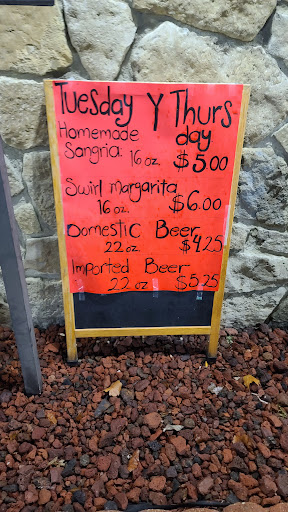 Tuesday Y Thurs
day
Homemade
Sangria: 16 oz. $5.00
Swirl Margarita
16 oz. $6.00
Domestic Beer
22 oz $4.25
Imported Beer-
22 oz $5.25